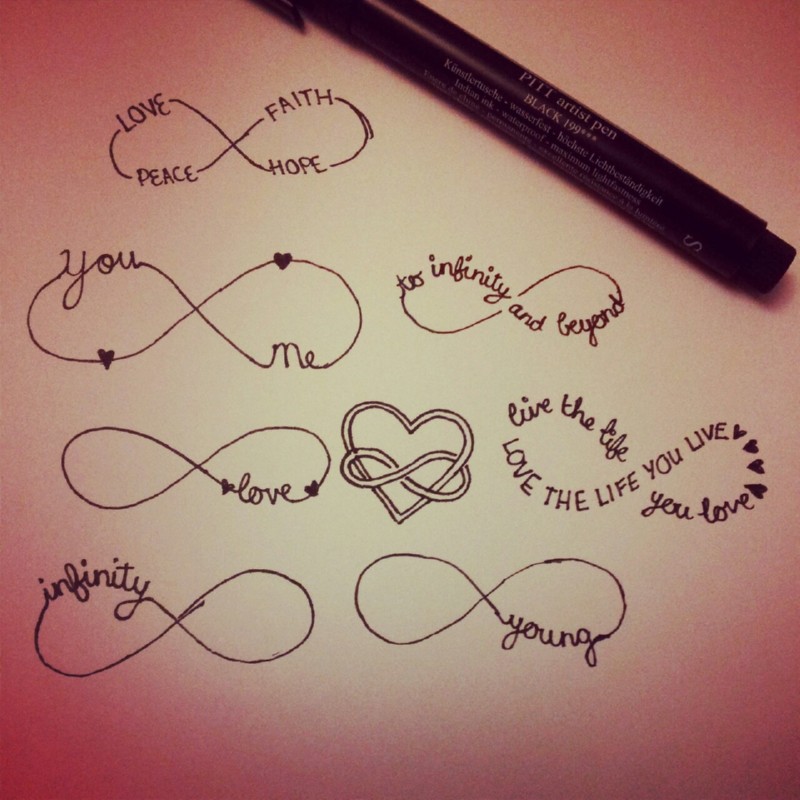 PITT artist pen
BLACK 199***
Künstlertusche - wasserfest - höchste Lichtbeständigkeit
Indian ink - waterproof - maximum lightfastness
S
LOVE FAITH
PEACE HOPE
You
Me
to infinity
and beyond
love
live the life
LOVE THE LIFE YOU LIVE
you love
infinity
young